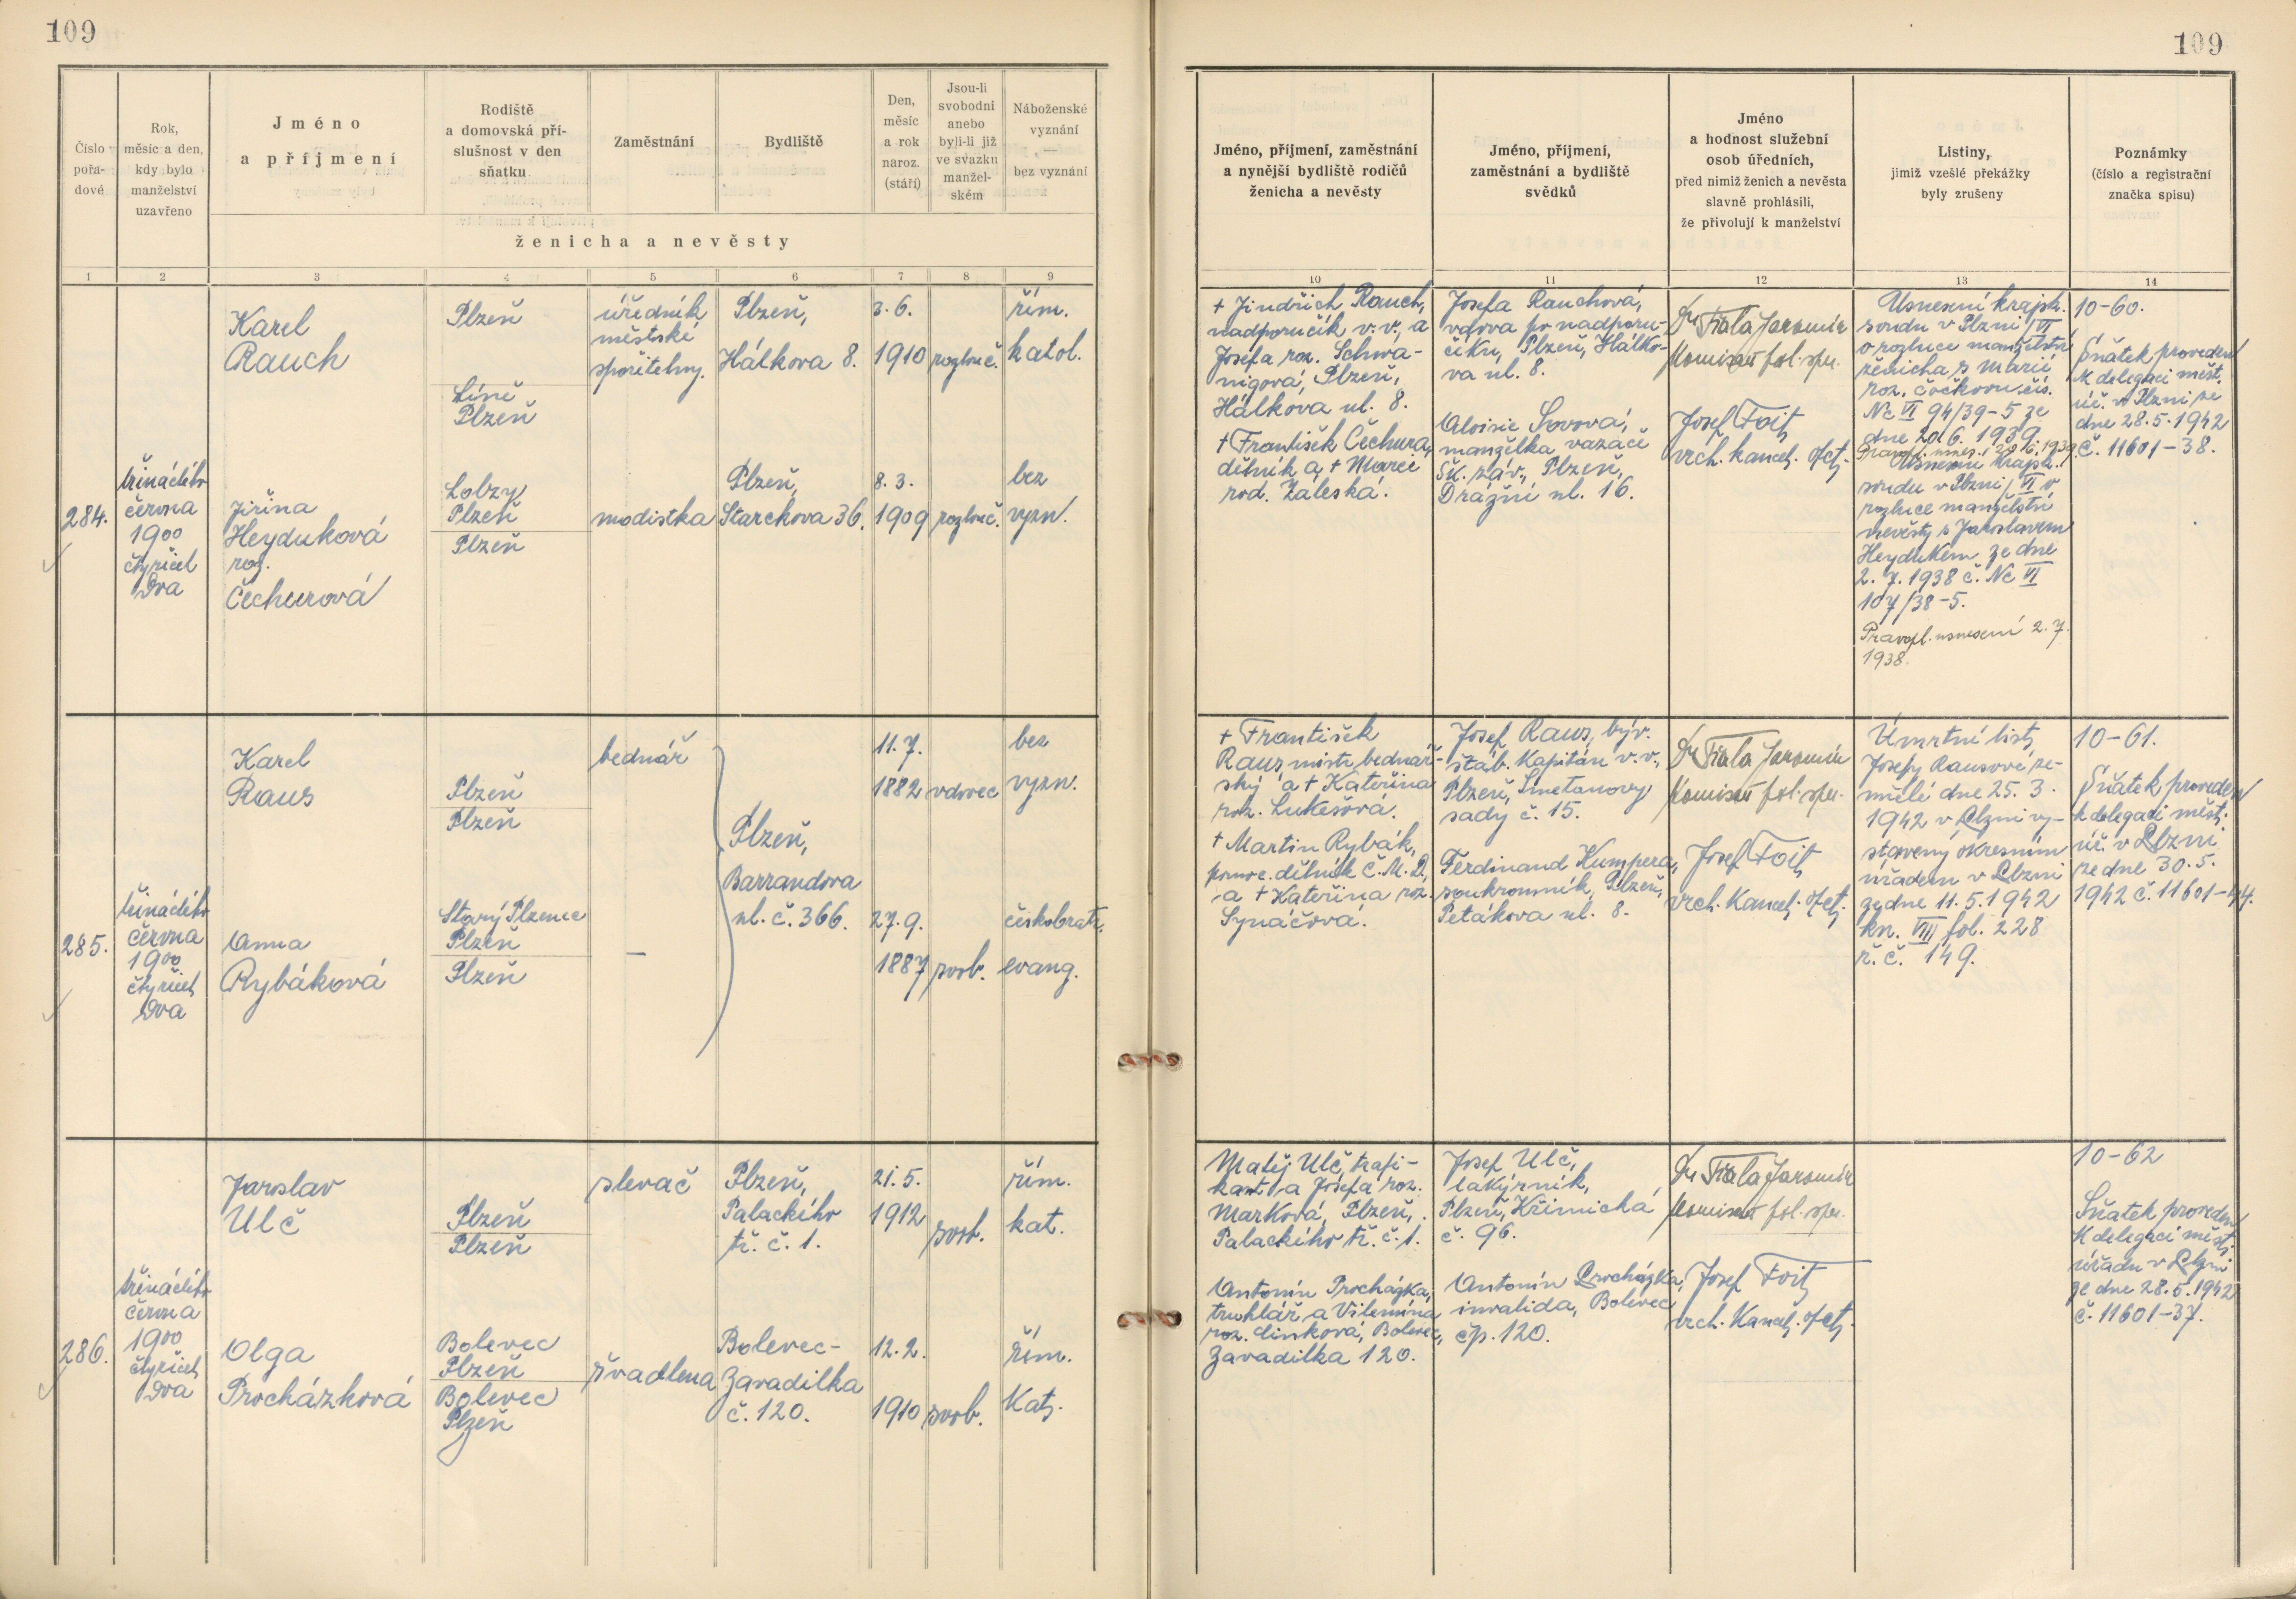 109
109
Číslo
pořa-
dové
Rok,
měsíc a den,
kdy bylo
manželství
uzavřeno
Jméno
a příjmení
Rodiště
a domovská pří-
slušnost v den
sňatku
Zaměstnání
Bydliště
Den,
měsíc
a rok
naroz.
(stáří)
Jsou-li
svobodni
anebo
byli-li již
ve svazku
manžel-
ském
Náboženské
vyznání
—
bez vyznání
ženicha a nevěsty
Jméno, příjmení, zaměstnání
a nynější bydliště rodičů
ženicha a nevěsty
Jméno, příjmení,
zaměstnání a bydliště
svědků
Jméno
a hodnost služební
osob úředních,
před nimiž ženich a nevěsta
slavně prohlásili,
že přivolují k manželství
Listiny,
jimiž vzešlé překážky
byly zrušeny
Poznámky
(číslo a registrační
značka spisu)
1 2 3 4 5 6 7 8 9 10 11 12 13 14
284.
třináctého
června
1900
čtyřicet
dva
Karel
Rauch
Plzeň
Líně
Plzeň
úředník
městské
spořitelny.
Plzeň,
Hálkova 8.
3. 6.
1910
rozlouč.
řím.
katol.
Jiřina
Heyduková
roz.
Čechurová
Lobzy
Plzeň
Plzeň
modistka
Plzeň,
Starckova 36.
8. 3.
1909
rozlouč.
bez
vyzn.
+ Jindřich Rauch,
nadporučík v. v., a
Josefa roz. Schwa-
nigová, Plzeň,
Hálkova ul. 8.
+ František Čechura,
dělník a + Marie
rod. Záleská.
Josefa Rauchová,
vdova po nadporu-
číku, Plzeň, Hálko-
va ul. 8.
Aloisie Sovová,
manželka vazače
Šk. záv., Plzeň,
Drážní ul. 16.
Dr Fiala Jaromír
komisař pol. spr.
Josef Foit
vrch. kancel. ofct.
Usnesení krajsk.
soudu v Plzni / VI
o rozluce manželství
ženicha s Marií
roz. Čočkovou čís.
Nc VI 94/39-5 ze
dne 20. 6. 1939
Usnesení krajsk.
soudu v Plzni / VI o
rozluce manželství
nevěsty s Jaroslavem
Heydukem ze dne
2. 7. 1938 č. Nc VI
107/38-5.
Pravopl. usnesení 2. 7.
1938.
10-60.
Sňatek proveden
k delegaci měst.
úř. v Plzni ze
dne 28. 5. 1942
č. 11601-38.
285.
třináctého
června
1900
čtyřicet
dva
Karel
Raus
Plzeň
Plzeň
bednář
Plzeň,
Barrandova
ul. č. 366.
11. 7.
1882
vdovec
bez
vyzn.
Anna
Rybáková
Starý Plzenec
Plzeň
Plzeň
—
27. 9.
1887
svob.
českobratr.
evang.
+ František
Raus, mistr bednář-
ský a + Kateřina
roz. Lukešová.
+ Martin Rybák,
pomoc. dělník Č. M. D.,
a + Kateřina roz.
Synáčová.
Josef Raus, býv.
štáb. kapitán v. v.,
Plzeň, Smetanovy
sady č. 15.
Ferdinand Kumpera,
soukromník, Plzeň,
Petákova ul. 8.
Dr Fiala Jaromír
komisař pol. spr.
Josef Foit
vrch. kancel. ofct.
Úmrtní list
Josefy Rausové, ze-
mřelé dne 25. 3.
1942 v Plzni vy-
stavený okresním
úřadem v Plzni
ze dne 11. 5. 1942
kn. VIII fol. 228
ř. č. 149.
10-61.
Sňatek proveden
k delegaci měst.
úř. v Plzni
ze dne 30. 5.
1942 č. 11601-44.
286.
třináctého
června
1900
čtyřicet
dva
Jaroslav
Ulč
Plzeň
Plzeň
slevač
Plzeň,
Palackého
tř. č. 1.
21. 5.
1912
svob.
řím.
kat.
Olga
Procházková
Bolevec
Plzeň
Bolevec
Plzeň
švadlena
Bolevec-
Zavadilka
č. 120.
12. 2.
1910
svob.
řím.
Kat.
Matěj Ulč, trafi-
kant a Josefa roz.
Marková, Plzeň,
Palackého tř. č. 1.
Antonín Procházka,
truhlář a Vilemína
roz. Linková, Bolevec,
Zavadilka 120.
Josef Ulč,
lakýrník,
Plzeň, Křimická
č. 96.
Antonín Procházka,
invalida, Bolevec
čp. 120.
Dr Fiala Jaromír
komisař pol. spr.
Josef Foit
vrch. kancel. ofct.
10-62
Sňatek proveden
k delegaci měst.
úřadu v Plzni
ze dne 28. 5. 1942
č. 11601-37.